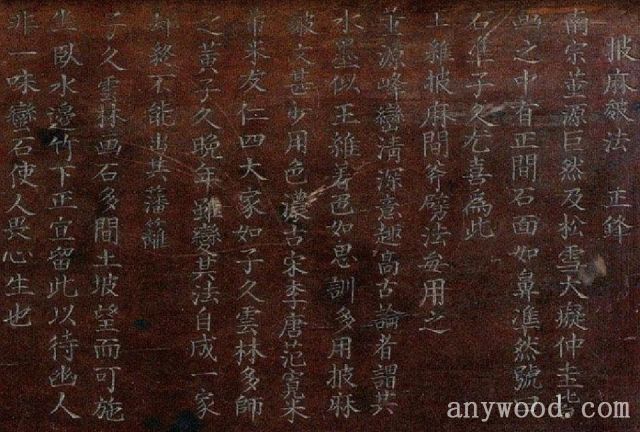 披麻皴法 正鋒
南宗董源巨然及松雪大癡仲圭皆
此之中有正間石面如鼻準然號
石隼子久尤喜為此
王維披麻間斧劈法每用之
董源峰巒清深意趣高古論者謂其
水墨似王維着色如思訓多用披麻
皴文甚少用色濃古宋李唐范寬米
芾米友仁四大家如子久雲林多師
之黃子久晚年雖變其法自成一家
却終不能出其藩籬
子久雲林画石多間土坡望而可施
坐臥水邊竹下正宜留此以待幽人
非一味巒石使人畏心生也
anywood.com